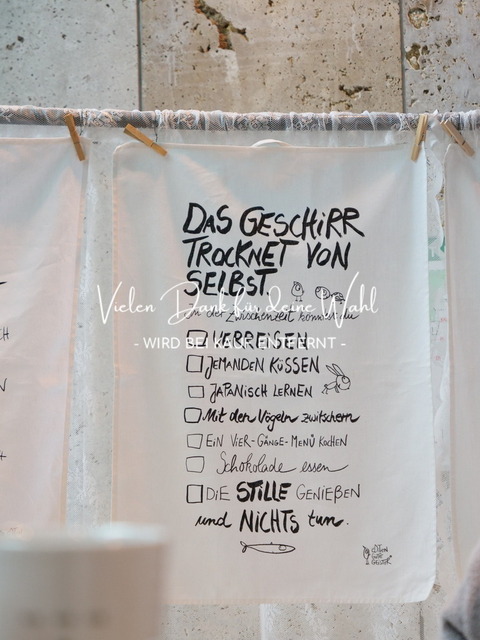 DAS GESCHIRR
TROCKNET VON
SELBST
In der Zwischenzeit kannst du
Vielen Dank für deine Wahl
VERREISEN
- WIRD BEI KAUF ENTFERNT -
JEMANDEN KÜSSEN
JAPANISCH LERNEN
Mit den Vögeln zwitschern
EIN VIER-GÄNGE-MENÜ KOCHEN
Schokolade essen
DIE STILLE GENIEßEN
und NICHTS tun.